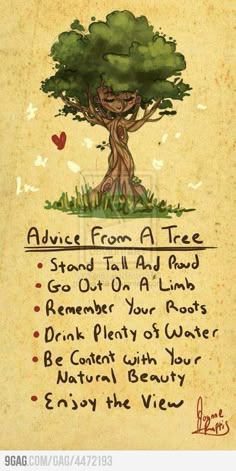 Advice From A Tree
• Stand Tall And Proud
• Go Out On A Limb
• Remember Your Roots
• Drink Plenty of Water
• Be Content with Your
Natural Beauty
• Enjoy the View
9GAG.COM/GAG/4472193